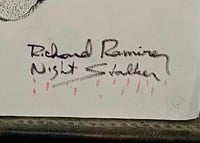 Richard Ramirez
Night Stalker